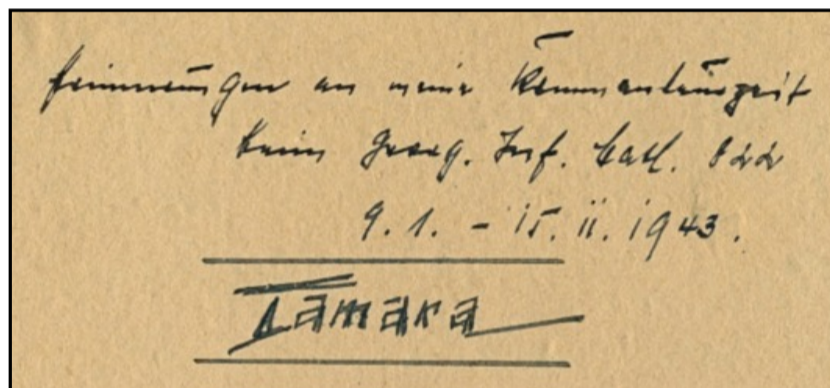 Erinnerungen an meine Kommandeurszeit
beim Georg. Inf. Batl. 822
9.1. - 15.11.1943.
Tamara